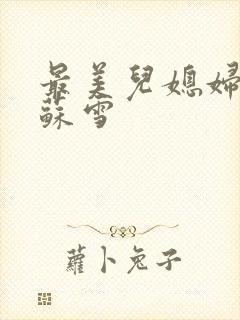 最美兒媳婦
蘇雪
蘿卜兔子